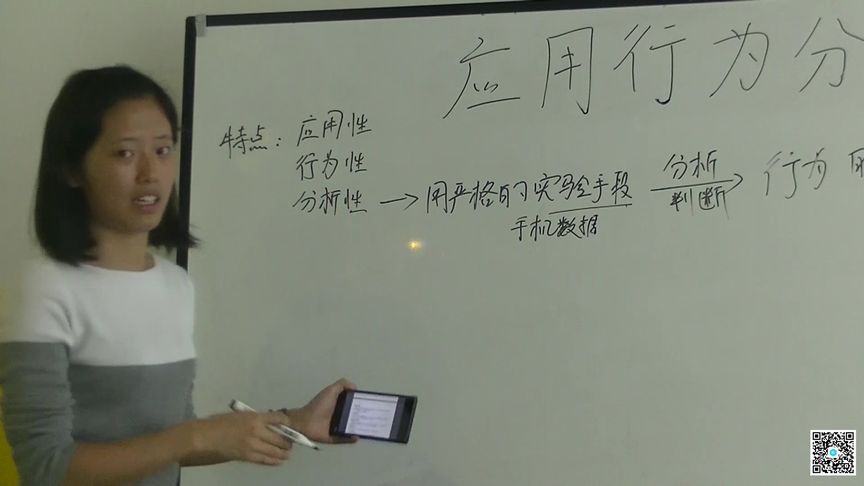 应用行为分
特点：应用性
行为性
分析性 → 用严格的实验手段 分析 判断 → 行为
手机数据